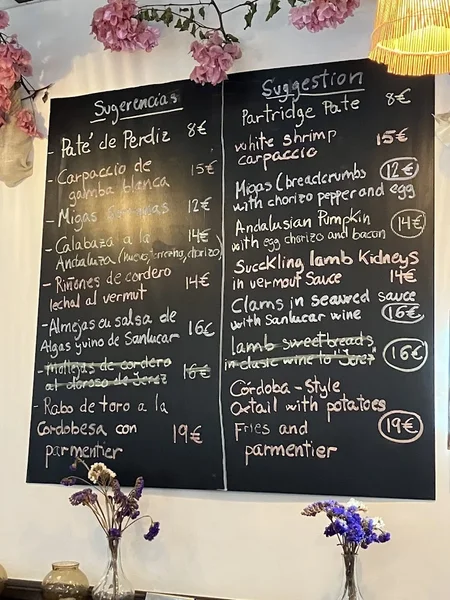 Sugerencias
- Paté de Perdiz 8€
- Carpaccio de
gamba blanca 15€
- Migas 12€
- Calabaza a la 14€
Andaluza (huevo, chorizo)
- Riñones de cordero
lechal al vermut 14€
- Almejas en salsa de
Algas y vino de Sanlucar 16€
- Mollejas de cordero
al oloroso de Jerez 16€
- Rabo de toro a la
Cordobesa con 19€
parmentier
Suggestion
Partridge Pate 8€
white shrimp 15€
carpaccio
Migas (breadcrumbs 12€
with chorizo pepper and egg
Andalusian Pumpkin 14€
with egg chorizo and bacon
Succkling lamb Kidneys
in vermout sauce 14€
Clams in seawed sauce
with Sanlucar wine 16€
lamb sweetbreads
in clasic wine to "Jerez" 16€
Córdoba-Style
Oxtail with potatoes
Fries and 19€
parmentier